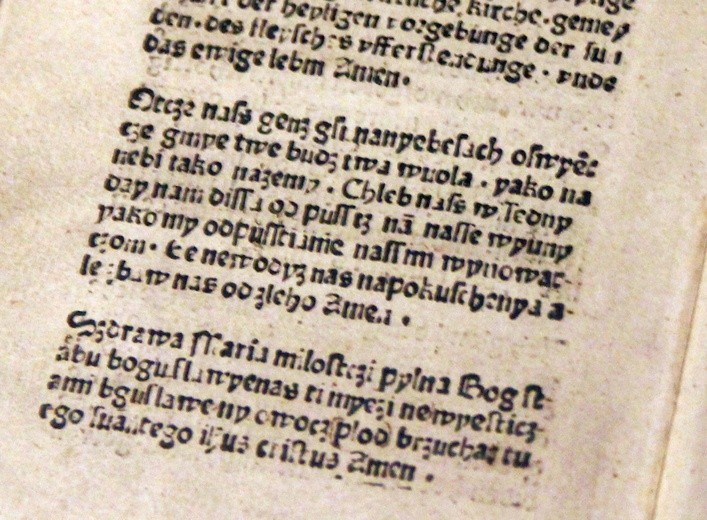 kirche · gemey
der heyligen vorgebunge der sun
den · des fleysches vfferstendunge · vnde
das ewige lebm Amen ·
Otcze nasz genz gsi nanyebesach oswyẽc
cze gmye twe budz twa wuola · yako na
nebi tako nazemy · Chleb nasz w Tedny
day nam dissa od pusstz nã nasse wyuny
yako my odpusstiamie nassim wynowac
zom · Ee newodyz nas napokuschenya a
le zbaw nas odzleho Amen ·
Szdrawa Maria milosczi pylna Bog st
abu boguslawyenas ti myezi newyesticz
ami bguslaweny owocz plod brzuchaz tu
ego suantego ihus cristus Amen ·